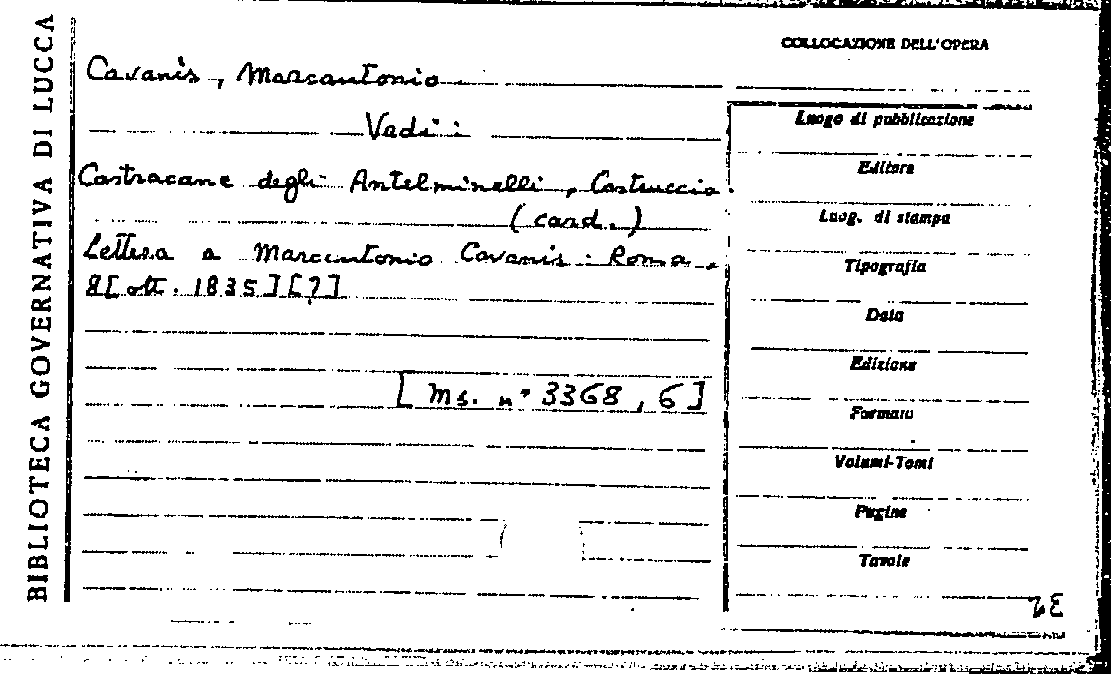 BIBLIOTECA GOVERNATIVA DI LUCCA
COLLOCAZIONE DELL'OPERA
Cavanis, Marcantonio
Vedi:
Castracane degli Antelminelli, Castruccio
(card.)
Lettera a Marcantonio Cavanis. Roma,
8[ott. 1835][?]
[ms. n° 3368, 6]
Luogo di pubblicazione
Editore
Luog. di stampa
Tipografia
Data
Edizione
Formato
Volumi-Tomi
Pagine
Tavole